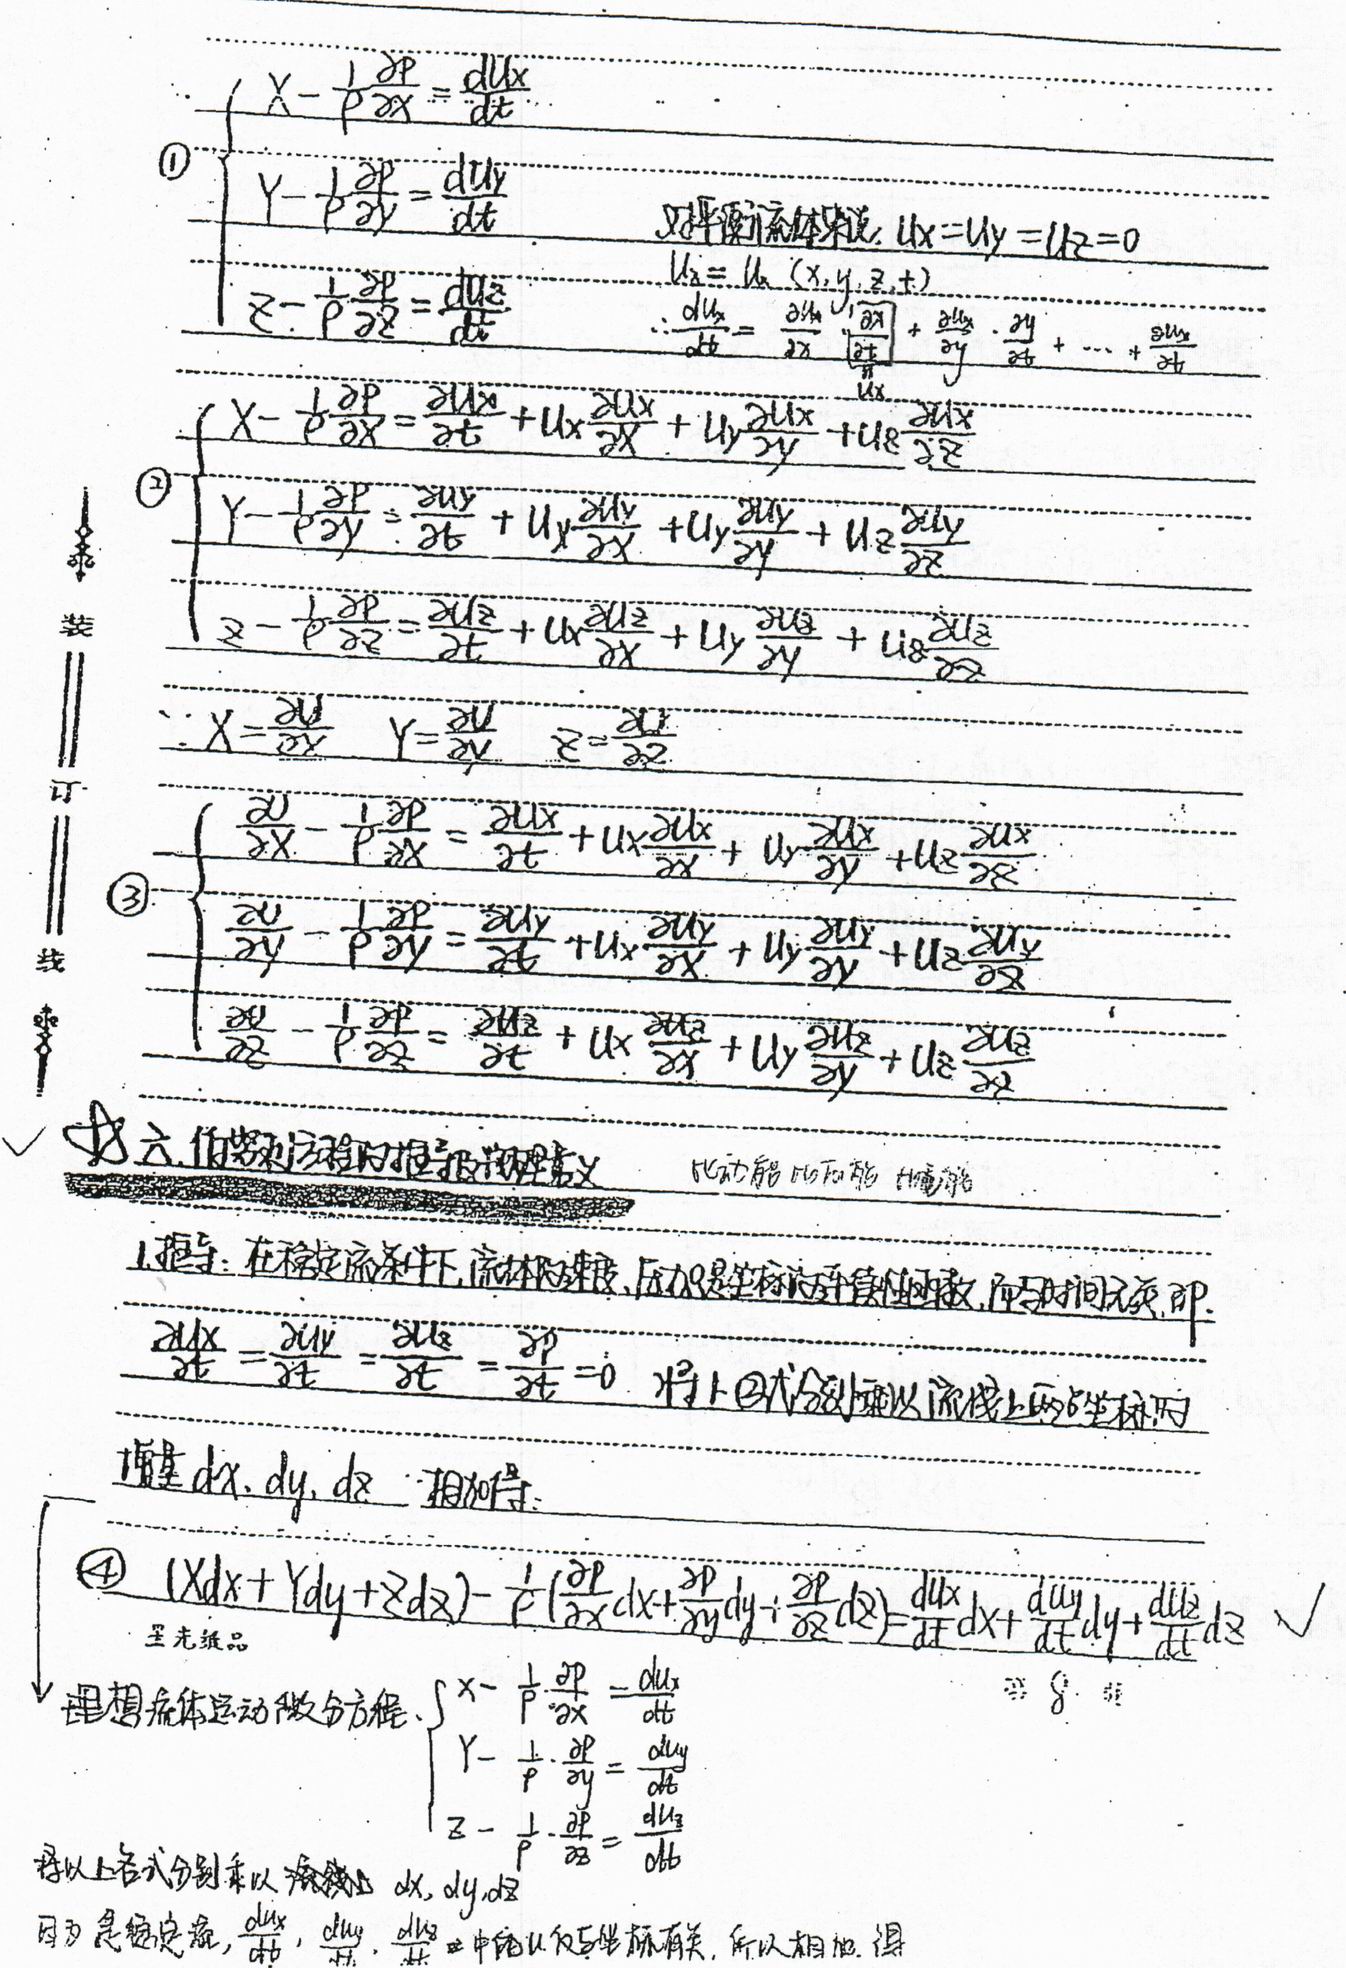 ∴ X - 1/ρ ∂p/∂x = dux/dt
①
Y - 1/ρ ∂p/∂y = duy/dt
对平衡流体来说, ux = uy = uz = 0
ux = ux (x, y, z, t)
Z - 1/ρ ∂p/∂z = duz/dt
∴ dux/dt = ∂ux/∂x · ∂x/∂t + ∂ux/∂y · ∂y/∂t + … + ∂ux/∂t
ux
X - 1/ρ ∂p/∂x = ∂ux/∂t + ux ∂ux/∂x + uy ∂ux/∂y + uz ∂ux/∂z
②
Y - 1/ρ ∂p/∂y = ∂uy/∂t + ux ∂uy/∂x + uy ∂uy/∂y + uz ∂uy/∂z
Z - 1/ρ ∂p/∂z = ∂uz/∂t + ux ∂uz/∂x + uy ∂uz/∂y + uz ∂uz/∂z
装
∵ X = ∂U/∂x Y = ∂U/∂y Z = ∂U/∂z
订
∂U/∂x - 1/ρ ∂p/∂x = ∂ux/∂t + ux ∂ux/∂x + uy ∂ux/∂y + uz ∂ux/∂z
③
∂U/∂y - 1/ρ ∂p/∂y = ∂uy/∂t + ux ∂uy/∂x + uy ∂uy/∂y + uz ∂uy/∂z
线
∂U/∂z - 1/ρ ∂p/∂z = ∂uz/∂t + ux ∂uz/∂x + uy ∂uz/∂y + uz ∂uz/∂z
六、伯努利方程的推导及物理意义 比动能 比压能 比能
1.推导: 在稳定流条件下, 流体的速度、压力只是坐标的函数, 而与时间无关, 即:
∂ux/∂t = ∂uy/∂t = ∂uz/∂t = ∂p/∂t = 0 将上②式分别乘以流线上两点坐标的
增量 dx, dy, dz 相加得:
④ (Xdx + Ydy + Zdz) - 1/ρ (∂p/∂x dx + ∂p/∂y dy + ∂p/∂z dz) = dux/dt dx + duy/dt dy + duz/dt dz ✓
星光纸品
理想流体运动微分方程:
X - 1/ρ · ∂p/∂x = dux/dt
Y - 1/ρ · ∂p/∂y = duy/dt
Z - 1/ρ · ∂p/∂z = duz/dt
将以上各式分别乘以流线上 dx, dy, dz
因为是稳定流, dux/dt, duy/dt, duz/dt 中的u仅与坐标有关, 所以相加, 得